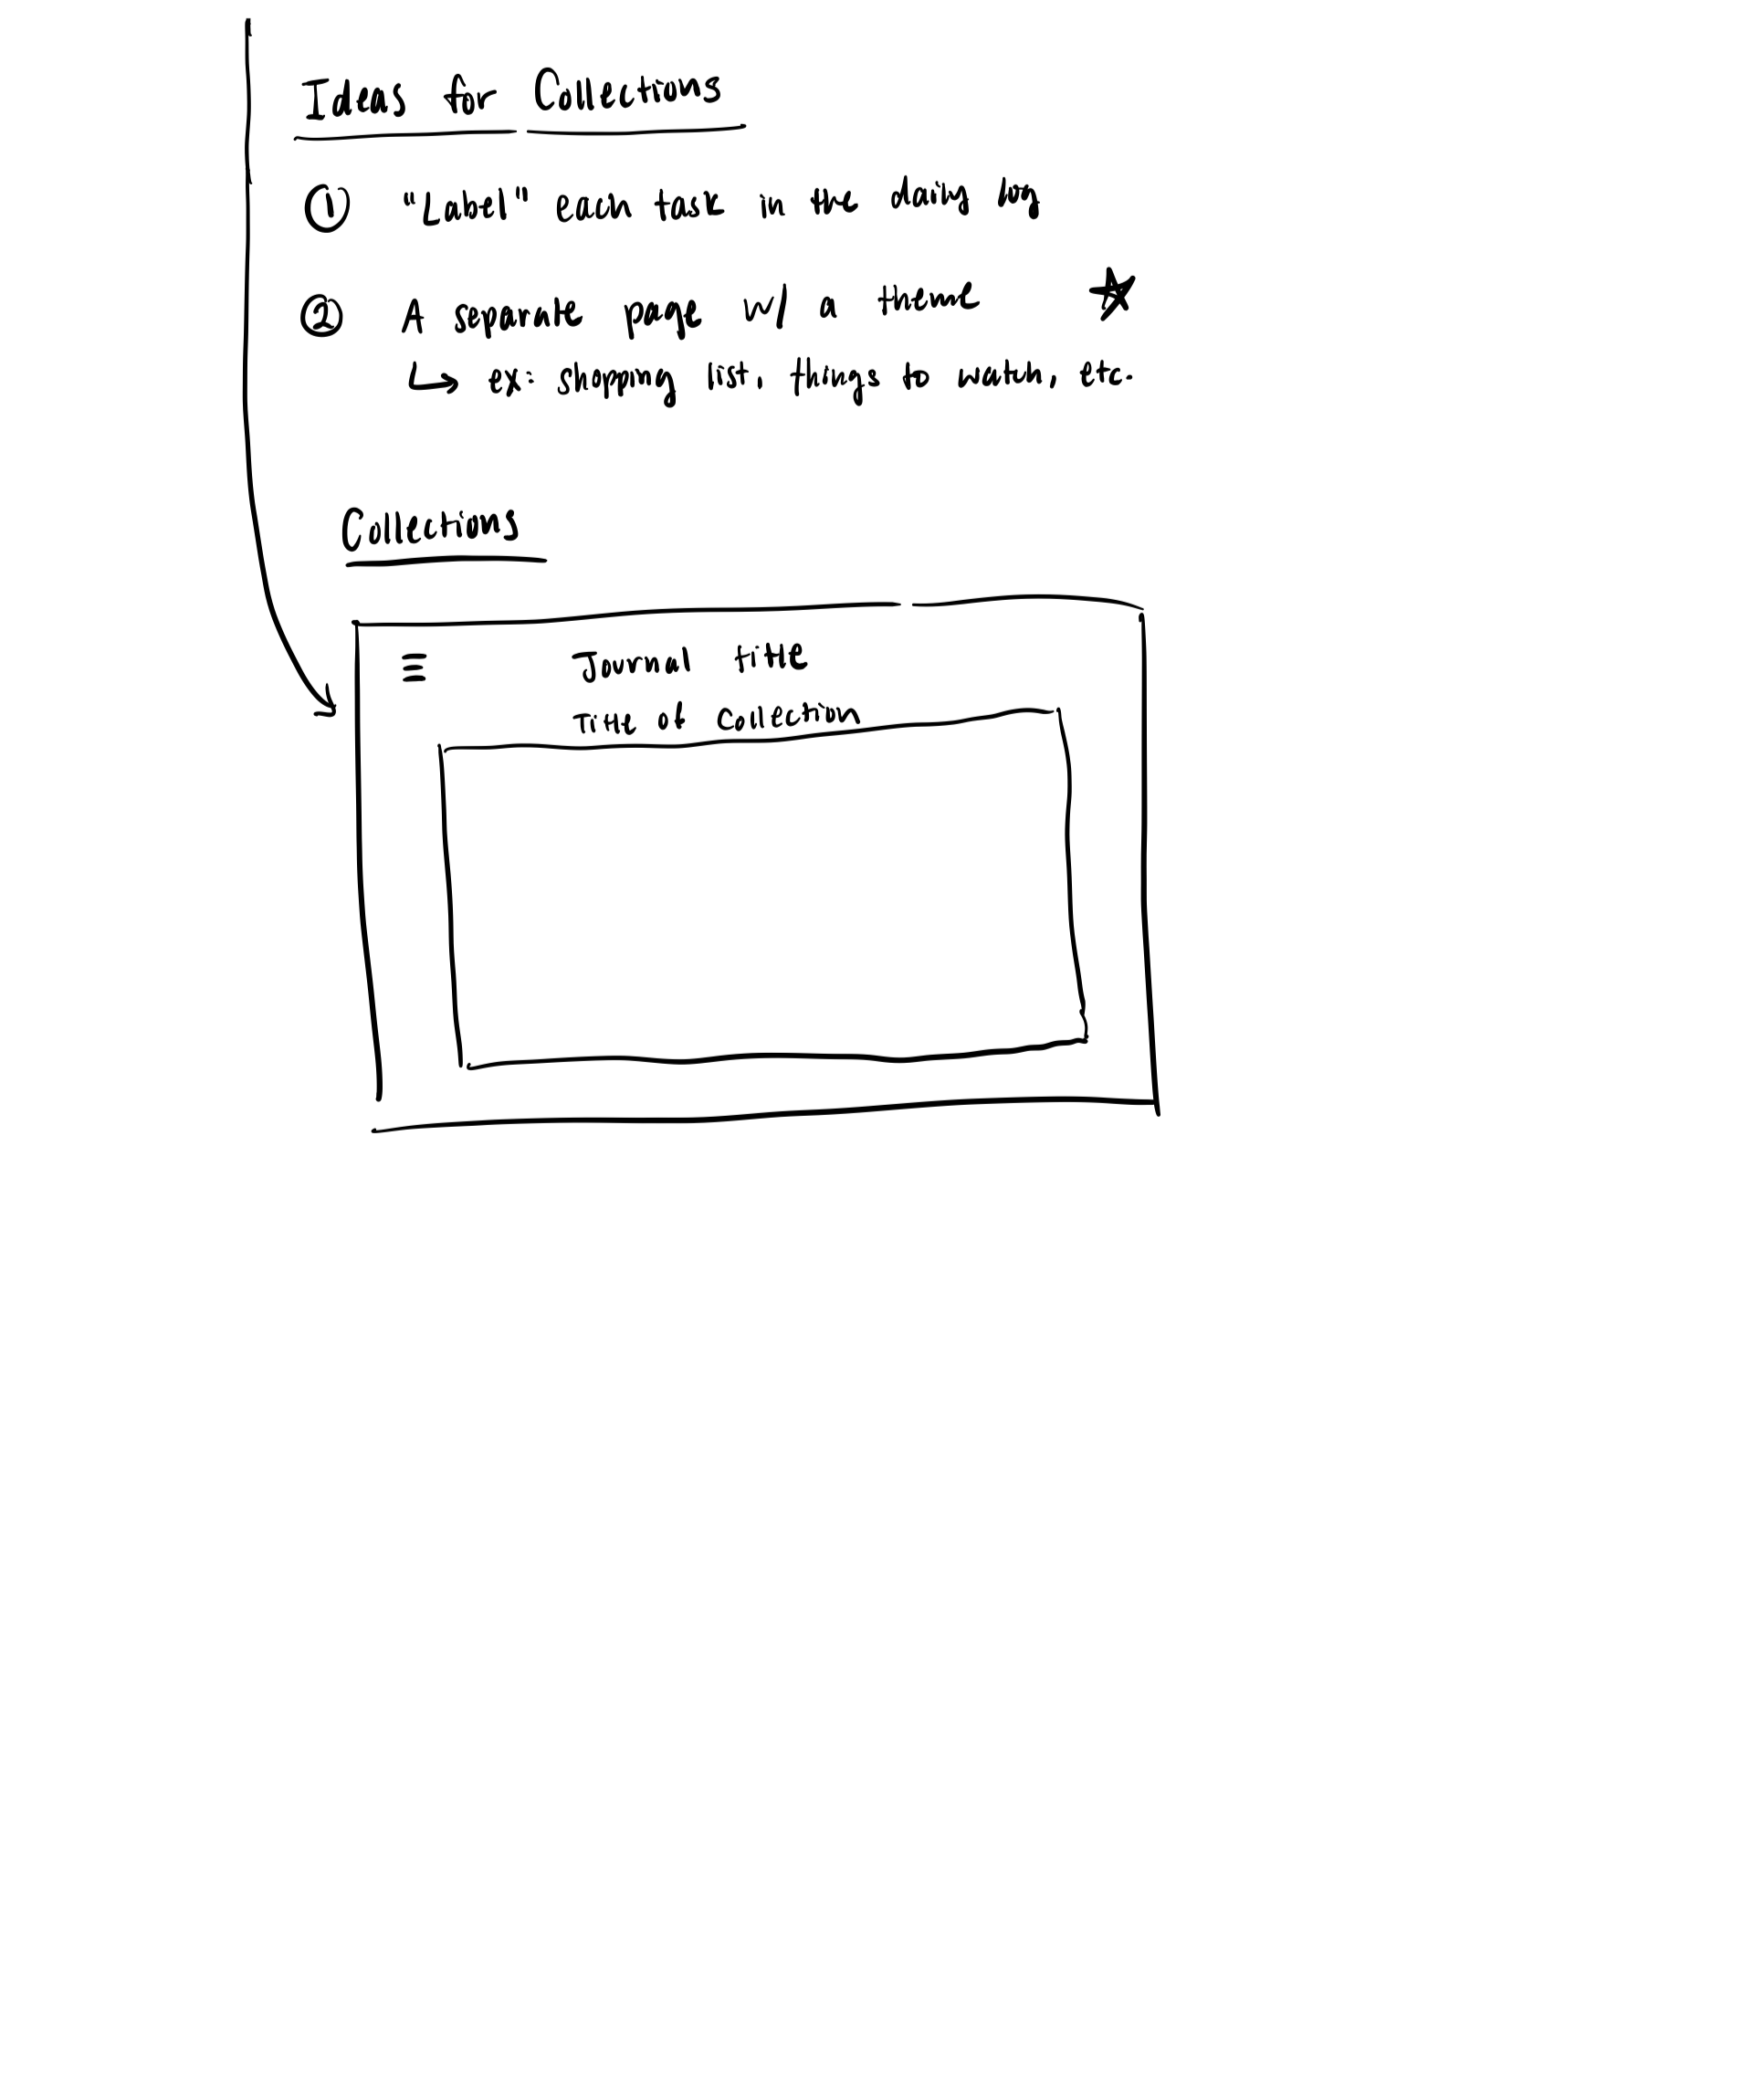 Ideas for Collections
① "Label" each task in the daily log
② A separate page w/ a theme
↳ ex: shopping list, things to watch, etc.
Collections
Journal title
Title of collection